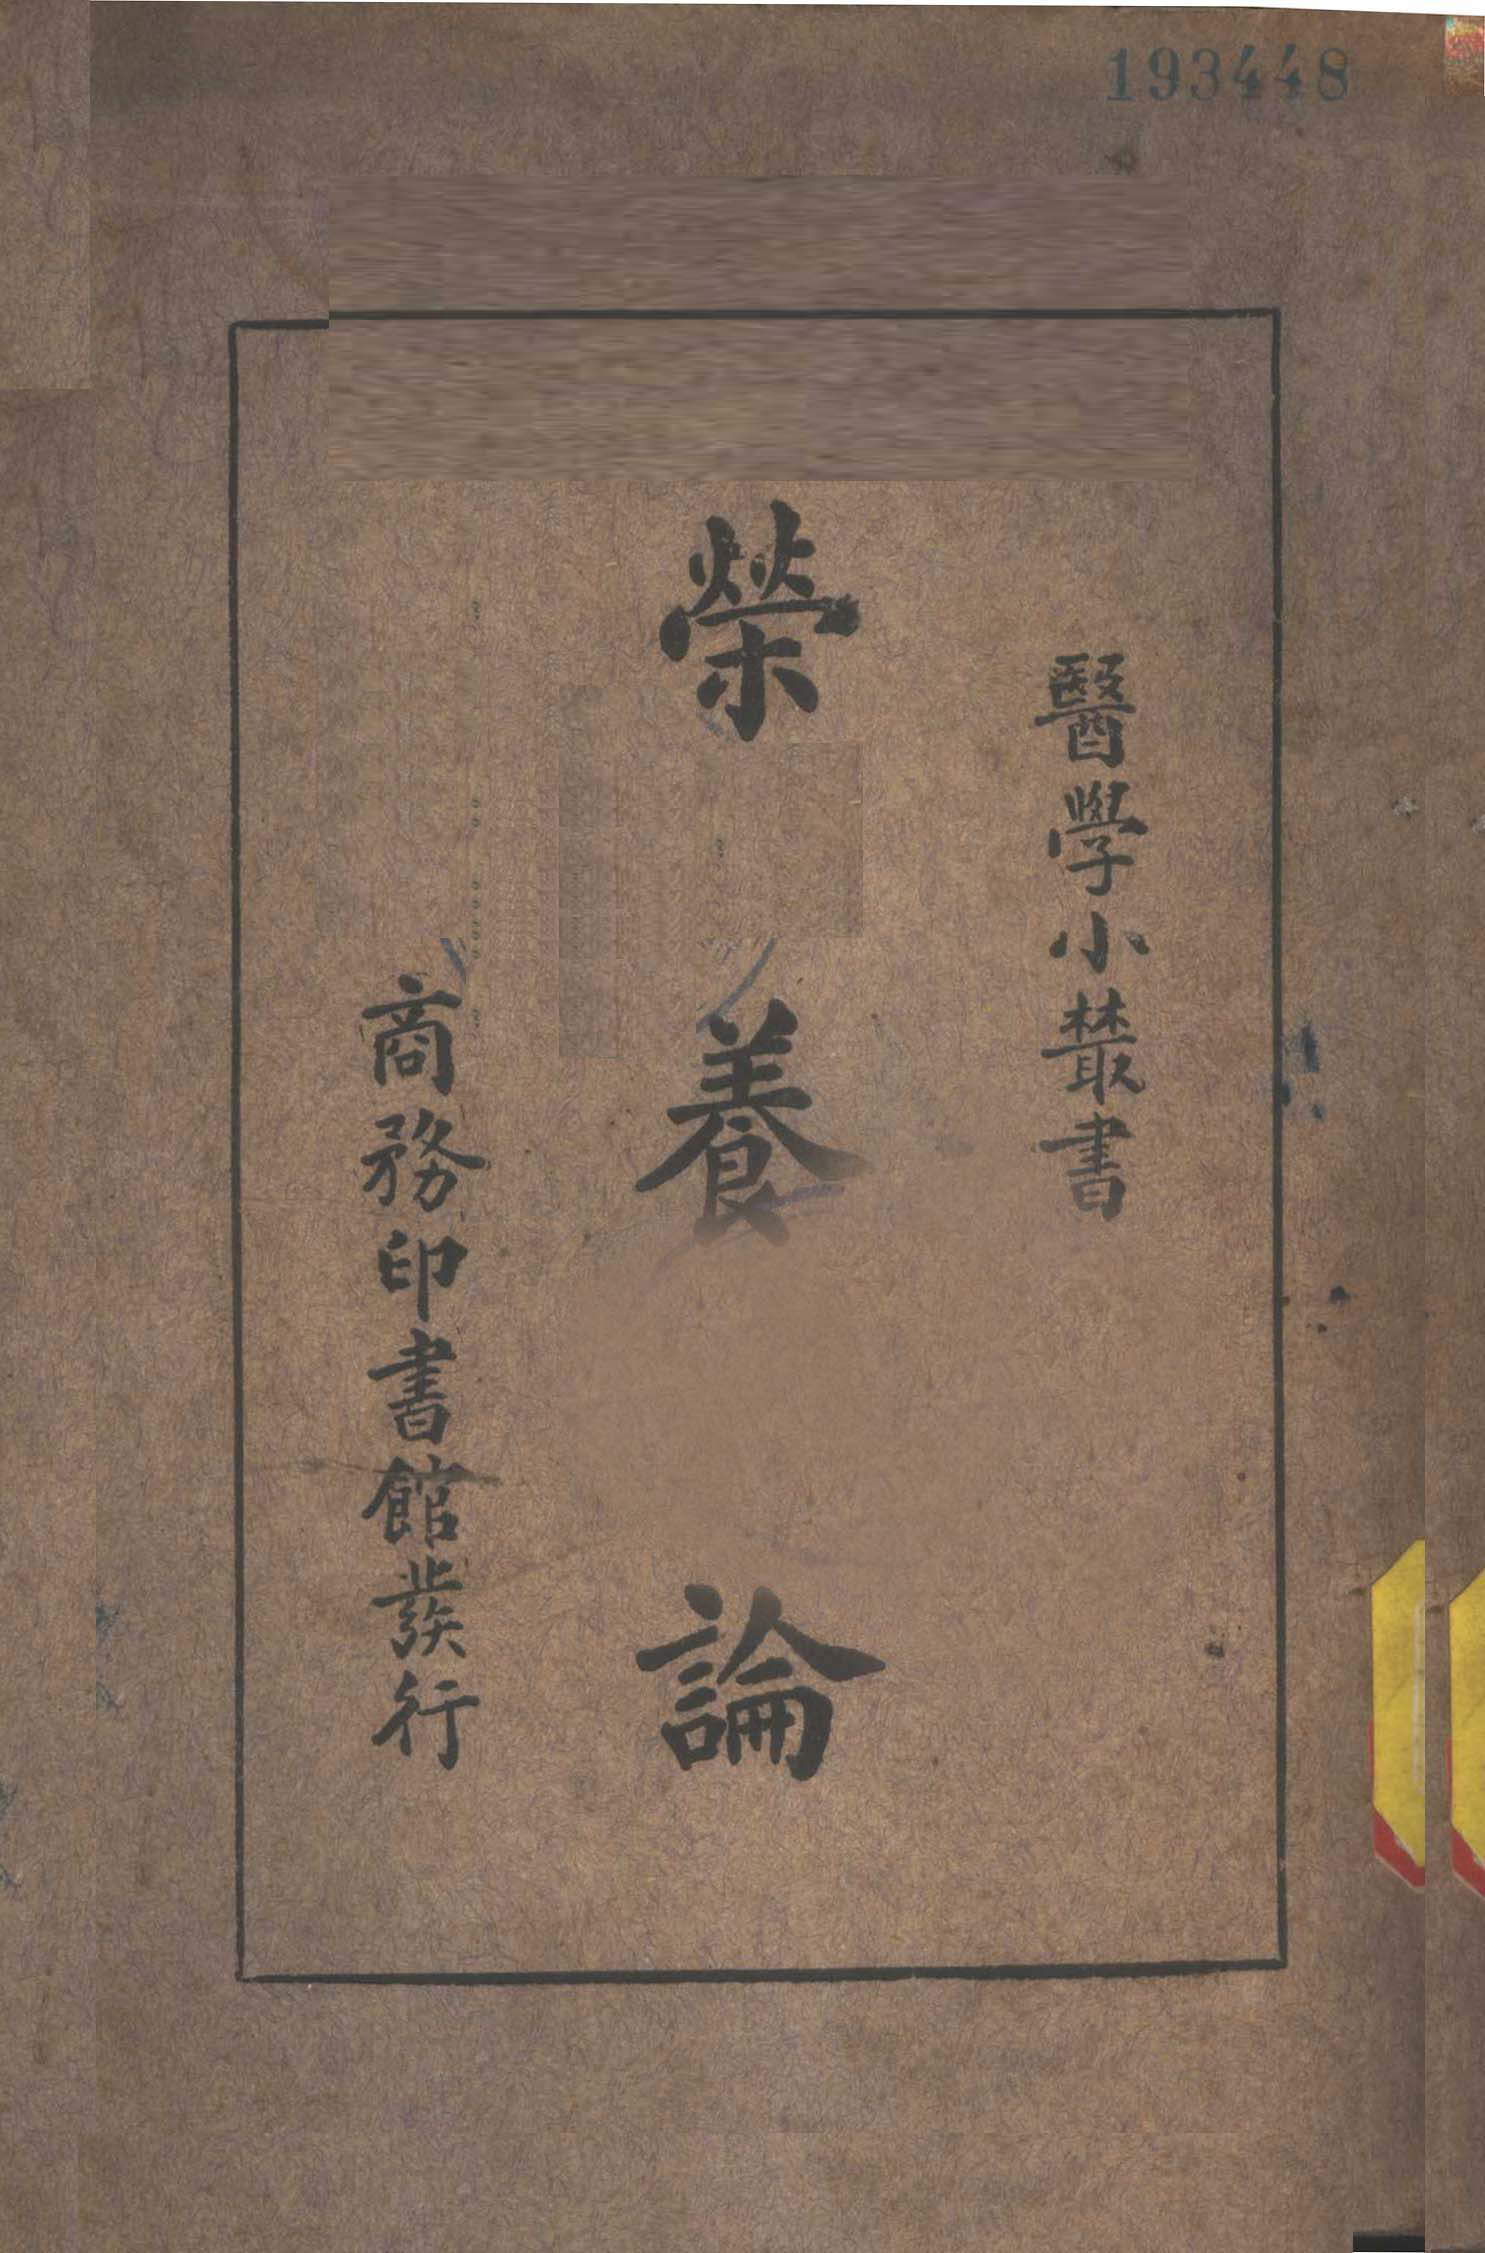 193448
醫學小叢書
榮養論
商務印書館發行